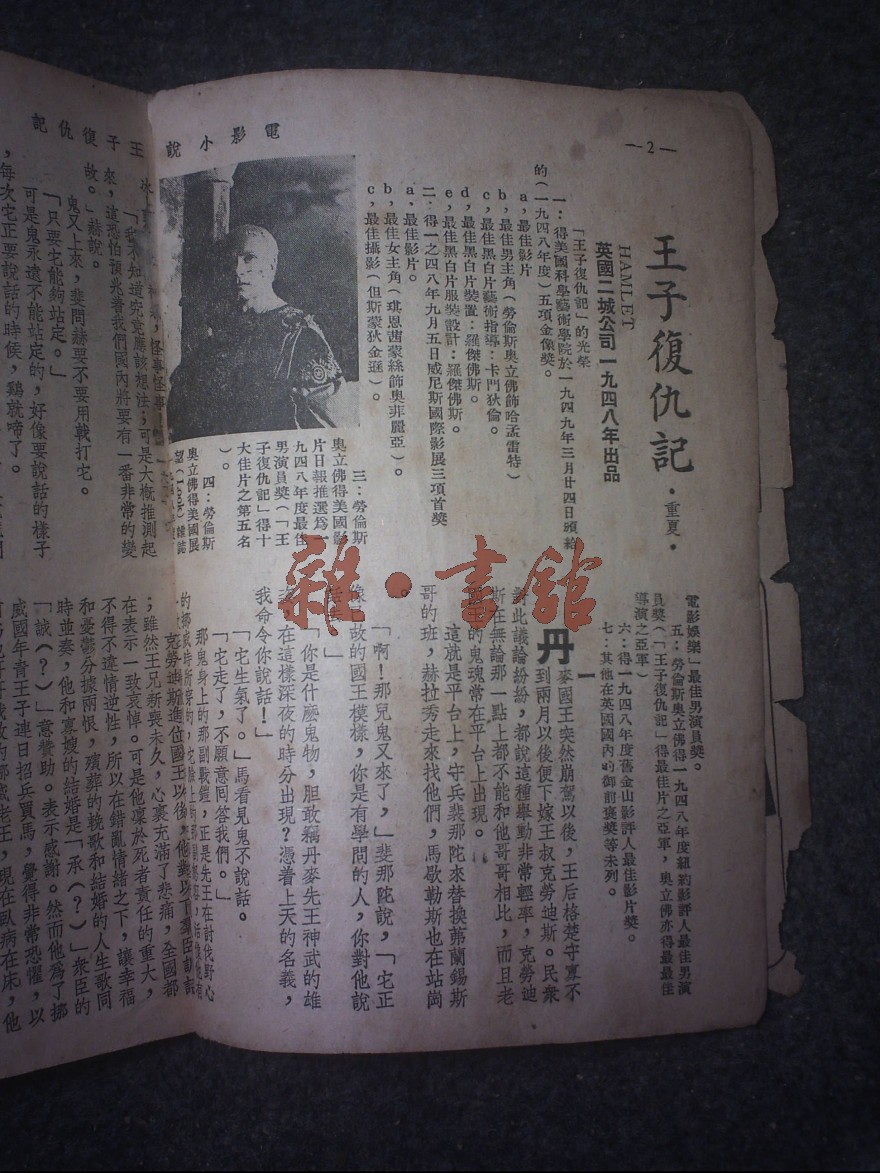 —2—
電影小說
王子復仇記
王子復仇記
·重夏·
HAMLET
英國二城公司一九四八年出品
「王子復仇記」的光榮
一：得美國科學藝術學院於一九四九年三月廿四日頒給
的（一九四八年度）五項金像獎。
a，最佳影片
b，最佳男主角（勞倫斯奧立佛飾哈孟雷特）
c，最佳黑白片藝術指導：卡門狄倫。
d，最佳黑白片裝置：羅傑佛斯。
e，最佳黑白片服裝設計：羅傑佛斯。
二：得一之四八年九月五日威尼斯國際影展三項首獎
a．最佳影片。
b，最佳女主角（琪恩茜蒙絲飾奧菲麗亞）。
c，最佳攝影（但斯蒙狄金遜）。
三：勞倫斯
奧立佛得美國影
片日報推選爲一
九四八年度最佳
男演員獎（「王
子復仇記」得十
大佳片之第五名
）。
四：勞倫斯
奧立佛得美國展
望（Look）雜誌
電影娛樂」最佳男演員獎。
五：勞倫斯奧立佛得一九四八年度紐約影評人最佳男演
員獎（「王子復仇記」得最佳片之亞軍，奧立佛亦得最最佳
導演之亞軍）
六：得一九四八年度舊金山影評人最佳影片獎。
七：其他在英國國內的御前褒獎等未列。
一
丹麥國王突然崩駕以後，王后格楚守寡不
到兩月以後便下嫁王叔克勞迪斯。民衆
對此議論紛紛，都說這種舉動非常輕率，克勞迪
斯在無論那一點上都不能和他哥哥相比，而且老
王的鬼魂常在平台上出現。
這就是平台上，守兵裴那陀來替換茀蘭錫斯
哥的班，赫拉秀走來找他們，馬歇勒斯也在站崗
。
「啊！那兒鬼又來了，」斐那陀說，「它正
像已故的國王模樣，你是有學問的人，你對他說
「你是什麽鬼物，胆敢竊丹麥先王神武的雄
姿，在這樣深夜的時分出現？憑着上天的名義，
我命令你說話！」
「它生氣了。」馬看見鬼不說話。
「它走了，不願意囘答我們。」
那鬼身上的那副戰鎧，正是先王在討伐野心
的挪威時所穿的，
「我不知道究竟應該想法；可是大槪推測起
來，這恐怕預兆着我們國內將要有一番非常的變
故。」赫說。
鬼又上來，斐問赫要不要用戟打宅。
「只要宅能夠站定。」
可是鬼永遠不能站定的，好像要說話的樣子
，每次宅正要說話的時候，鷄就啼了。
克勞迪斯進位國王以後，他對以下羣臣
；雖然王兄新喪未久，心裏充滿了悲痛，全國都
在表示一致哀悼。可是他凜於死者責任的重大，
不得不違情逆性，所以在錯亂情緒之下，讓幸福
和憂鬱分據兩恨，殯葬的挽歌和結婚的人生歌同
時並奏，他和寡嫂的結婚是「承（？）」衆臣的
「誠（？）」意贊助。表示感謝。然而他爲了挪
威國年青王子連日招兵買馬，覺得非常恐懼，以
老王，現在臥病在床，他
雜·書館